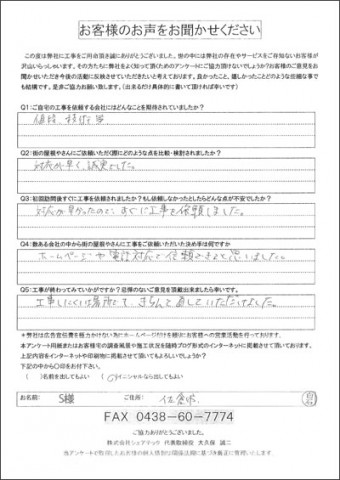 お客様のお声をお聞かせください
この度は弊社に工事をご用命頂き誠にありがとうございました。世の中には弊社の存在やサービスをご存知ないお客様が
沢山いらっしゃいます。その方たちに弊社をよく知って頂くためのアンケートにご協力頂けないでしょうか?お客様のご意見をお
聞かせいただき今後の活動に反映させていただきたいと考えております。良かったこと、嬉しかったことどのような些細な事で
も結構です。是非ご協力お願い致します。(出来るだけ具体的に書いて頂ければ幸いです)
Q1:ご自宅の工事を依頼する会社にはどんなことを期待されていましたか?
値段、技術
Q2:街の屋根やさんにご依頼いただく際にどのような点を比較・検討されましたか?
対応が早く、誠実でした。
Q3:初回訪問後すぐに工事を依頼されましたか?もし依頼しなかったとしたらどんな点が不安でしたか?
対応が早かったので、すぐに工事を依頼しました。
Q4:数ある会社の中から街の屋根やさんに工事をご依頼いただいた決め手は何ですか
ホームページや電話対応で信頼できると思いました。
Q5:工事が終わってみていかがですか?忌憚のないご意見を頂戴出来ましたら幸いです。
工事しにくい場所でも、きちんと直していただけました。
*弊社は広告宣伝費を極力かけない為にホームページだけを頼りにお客様への営業活動を行っております。
本アンケート用紙またはお客様宅の調査風景や施工状況を随時ブログ形式のインターネットに掲載させて頂いております。
上記内容をインターネットや印刷物に掲載させて頂いてもよろしいでしょうか?
下記の中から○印をお付下さい。
( )名前を出してもよい (○)イニシャルなら出してもよい
お名前: S様 ご住所: 佐倉市
FAX 0438-60-7774
ご協力ありがとうございました。
株式会社シェアテック 代表取締役 大久保 誠二
当アンケートで取得したお客様の個人情報は関係法規に基づき適正に管理いたします。